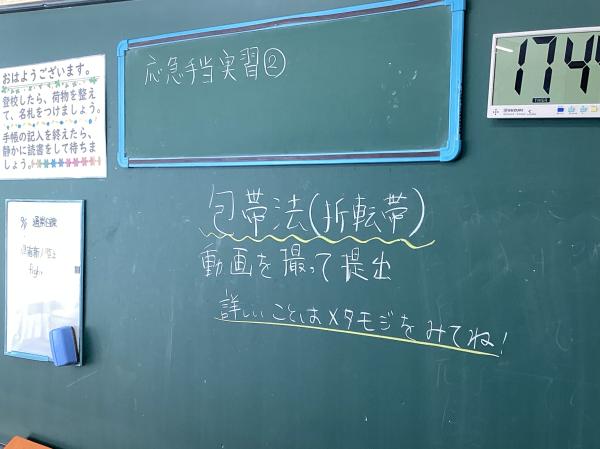 おはようございます。
登校したら、荷物を整え
て、名札をつけましょう。
手帳の記入を終えたら、
静かに読書をして待ちま
しょう。
応急手当実習②
174
包帯法(折転帯)
動画を撮って提出
詳しいことはメタモジをみてね!